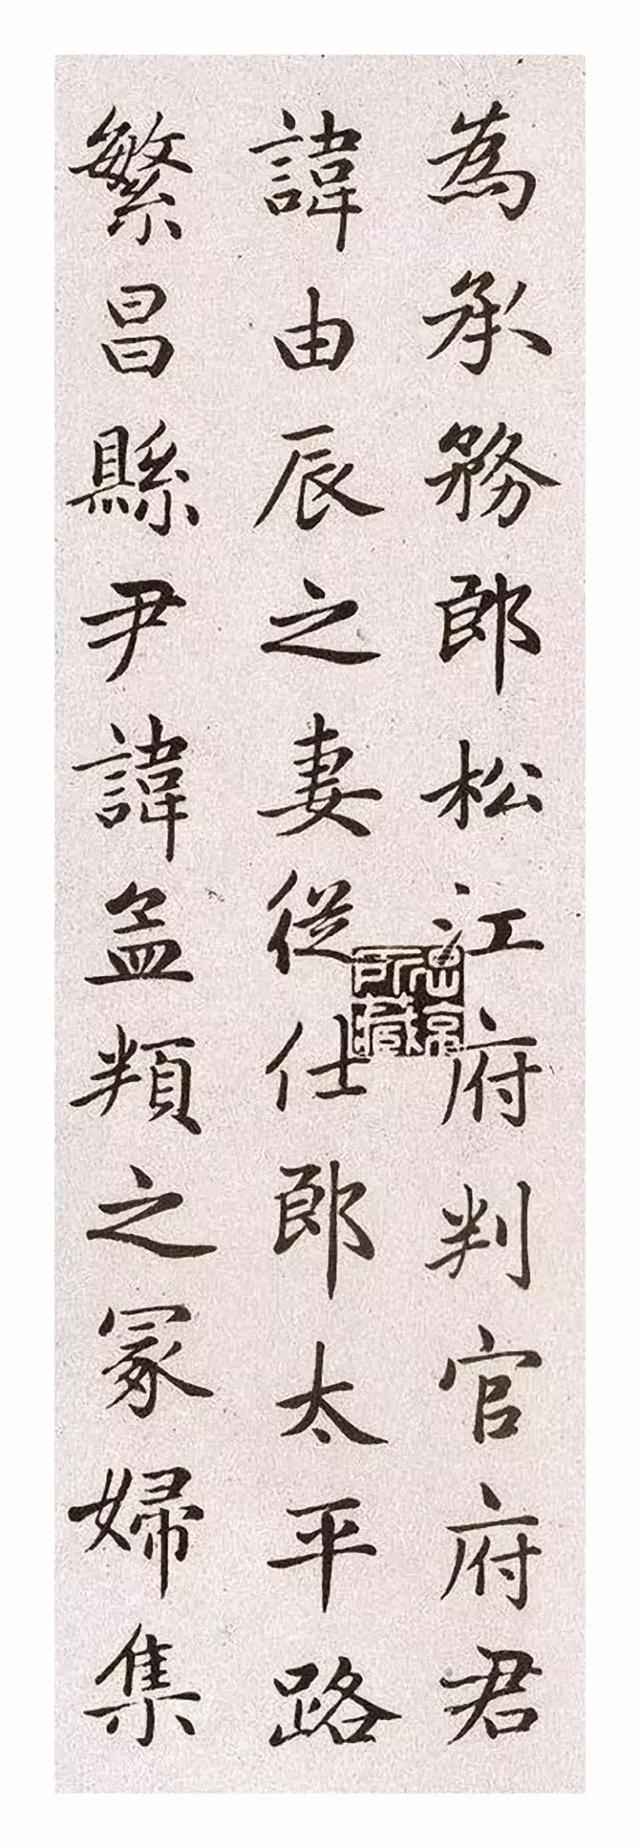 為承務郎松江府判官府君
諱由辰之妻從仕郎太平路
繁昌縣尹諱孟頖之冢婦集
所藏